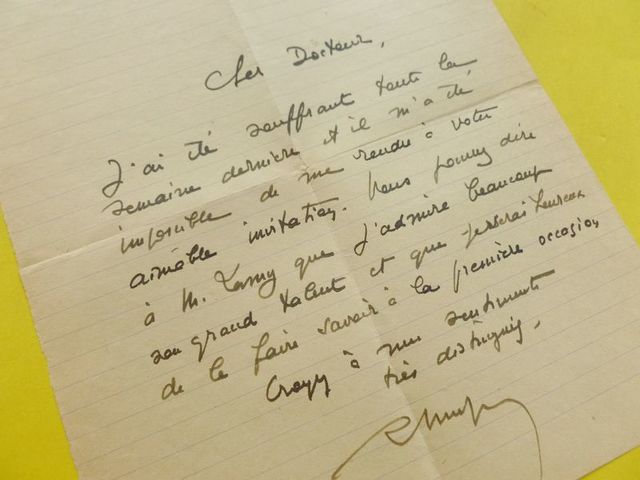 Cher Docteur,
J'ai été souffrant toute la
semaine dernière et il m'a été
impossible de me rendre à votre
aimable invitation. Vous pouvez dire
à M. que j'admire beaucoup
son grand talent et que je serai heureux
de le faire savoir à la première occasion
Croyez à mes sentiments
très distingués.